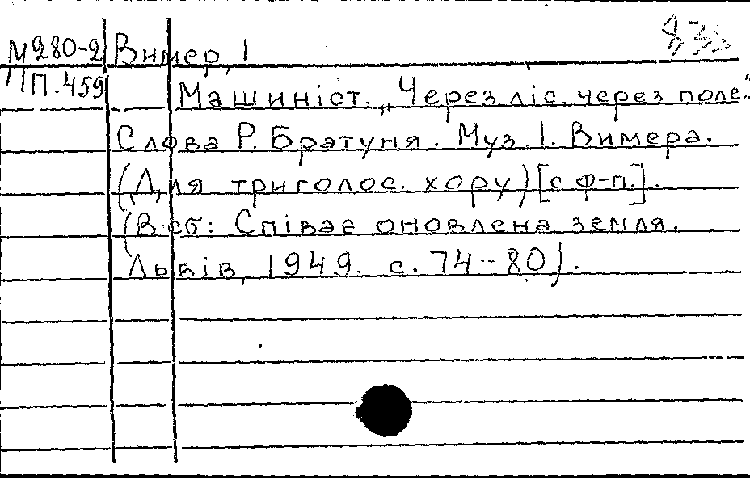 М280-2 Вимер, І
П.459
Машиніст. „Через ліс, через поле."
Слова Р. Братуня. Муз. І. Вимера.
(Для триголос. хору) [с ф-п.].
(В сб: Співає оновлена земля.
Львів, 1949. с. 74-80).